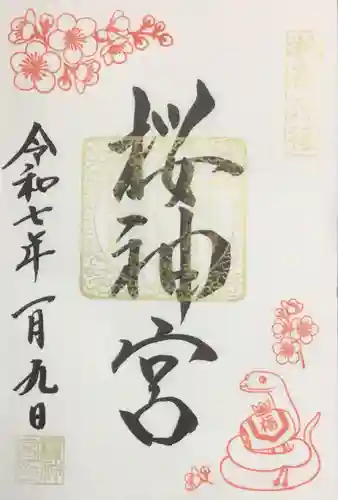 桜神宮
令和七年 一月九日
福